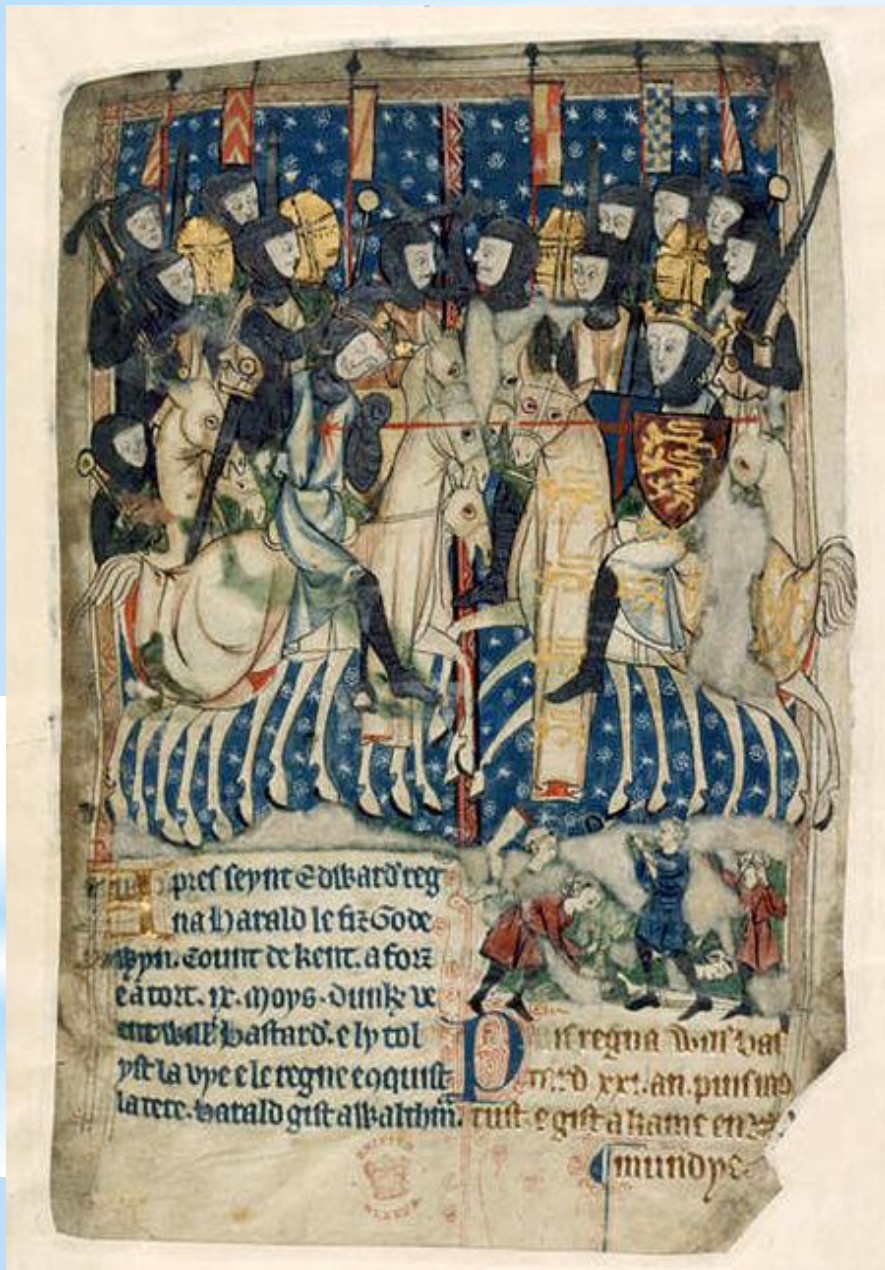 pres seynt Edward reg
na Harald le fiz Gode
wyn. Count de kent. a forz
e a tort. ix. moys. dunk ve
Will bastard. e ly tol
yst la vye e le regne conquist
la tere. Harald gist a Waltham.
regna Will bas
xxi. an. puis
rust e gist a kame en
mundye.